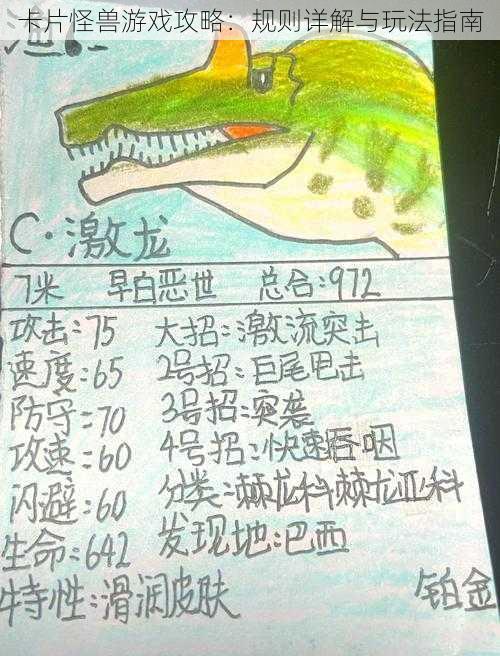 卡片怪兽游戏攻略：规则详解与玩法指南
C·激龙
7米 早白恶世 总合:972
攻击:75 大招:激流突击
速度:65 2号招:巨尾甩击
防守:70 3号招:突袭
攻速:60 4号招:快速吞咽
闪避:60 分类:棘龙科棘龙亚科
生命:642 发现地:巴西
特性:滑润皮肤 铂金